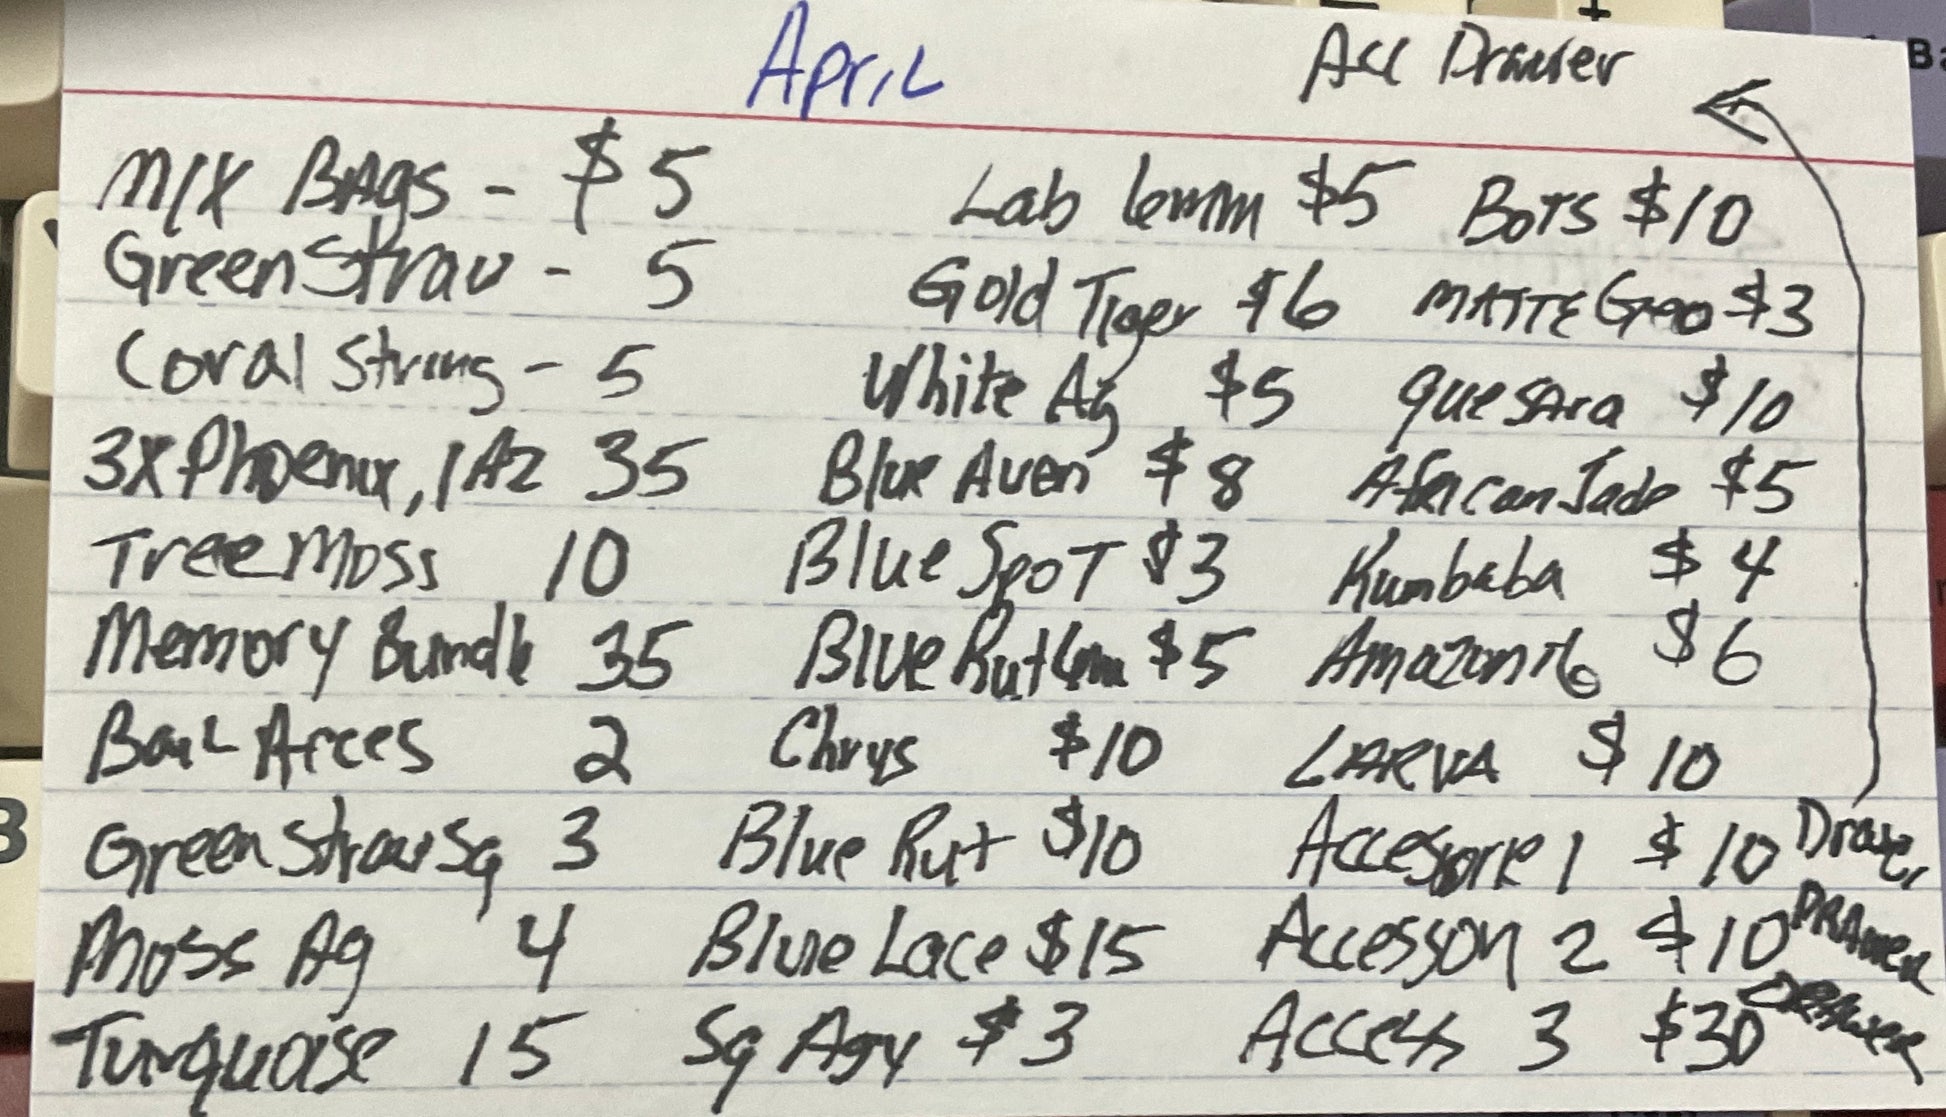 April Acc Drawer
Mix Bags - $5 Lab 6mm $5 Bots $10
Green Straw - 5 Gold Tiger $6 Matte Geo $3
Coral String - 5 White Ag $5 quesara $10
3x Phoenix, 1 Az 35 Blue Aven $8 African Jade $5
Tree Moss 10 Blue Spot $3 Kumbaba $4
Memory Bundle 35 Blue Rut 6m $5 Amazonite $6
2 Chrys $10 LARVA $10
Green Straw Sq 3 Blue Rut $10 Accessorie 1 $10 Drawer
Moss Ag 4 Blue Lace $15 Accessory 2 $10 DRAWER
Turquoise 15 Sq $3 Access 3 $30 DRAWER